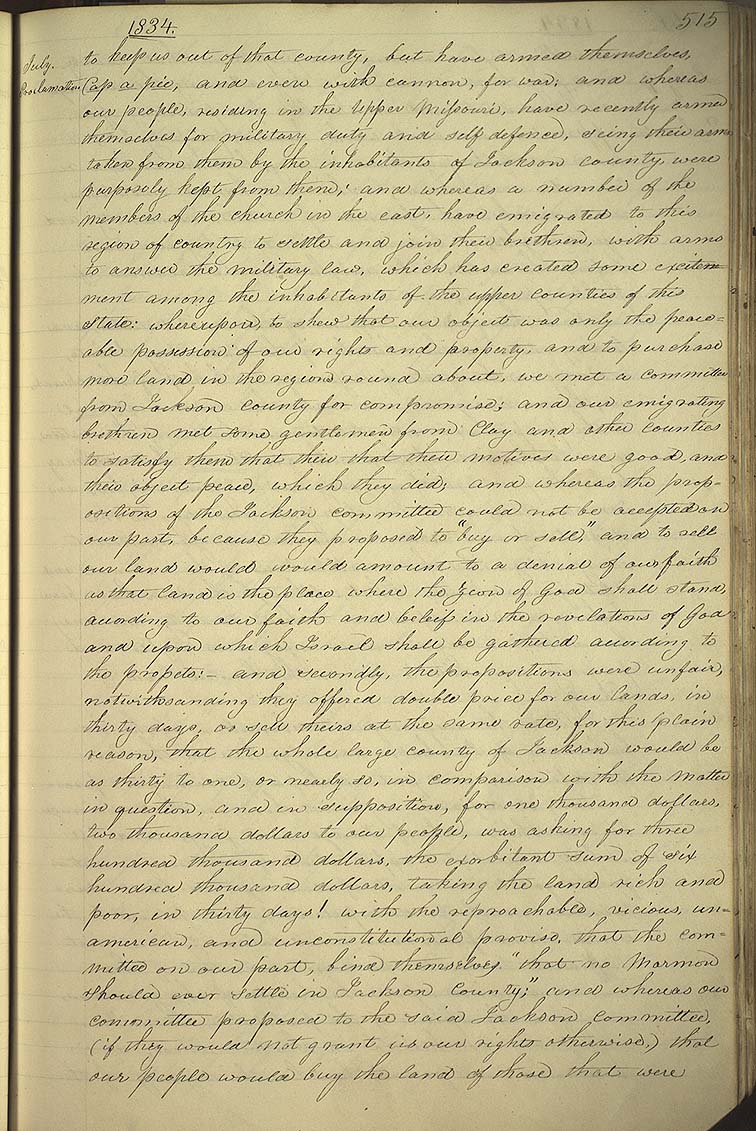 1834.
515
July.
Proclamation
to keep us out of that county, but have armed themselves,
Cap a pie, and even with cannon, for war; and whereas
our people, residing in the Upper Missouri, have recently armed
themselves for military duty and self defence, seing their arms
taken from them by the inhabitants of Jackson county, were
purposely kept from them; and whereas a number of the
members of the church in the east, have emigrated to this
region of country to settle and join their brethren, with arms
to answer the military law, which has created some excitem-
ment among the inhabitants of the upper counties of this
State: whereupon, to shew that our object was only the peace=
able possession of our rights and property, and to purchase
more land in the regions round about, we met a committee
from Jackson county for compromise; and our emigrating
brethren met some gentlemen from Clay and other counties
to satisfy them that their that their motives were good, and
their object peace, which they did; and whereas the prop-
ositions of the Jackson committee could not be accepted on
our part, because they proposed to "buy or sell," and to sell
our land would would amount to a denial of our faith
as that land is the place where the Zion of God shall stand,
acording to our faith and beleif in the revelations of God
and upon which Israel shall be gathered acording to
the propets:- and secondly, the propositions were unfair,
notwithsanding they offered double price for our lands, in
thirty days, or sell theirs at the same rate, for this plain
reason, that the whole large county of Jackson would be
as thirty to one, or nearly so, in comparison with the matter
in question, and in supposition, for one thousand dollars,
two thousand dollars to our people, was asking for three
hundred thousand dollars, the exorbitant sum of six
hundred thousand dollars, taking the land rich and
poor, in thirty days! with the reproachable, vicious, un=
american, and unconstitutional proviso, that the com=
mittee on our part, bind themselves "that no Mormon
should ever settle in Jackson County;" and whereas our
committee proposed to the said Jackson committee,
(if they would not grant us our rights otherwise,) that
our people would buy the land of those that were